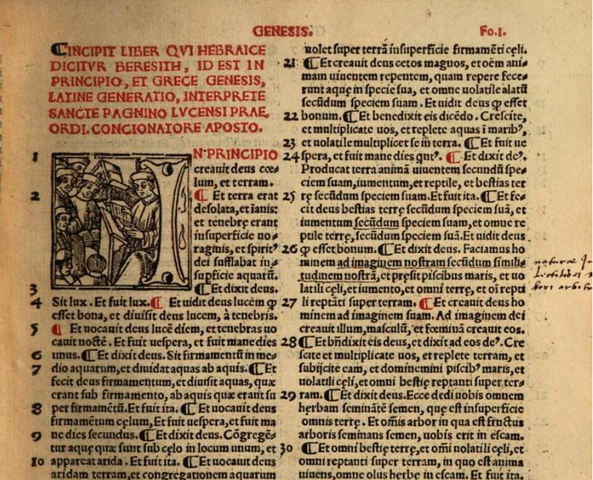 GENESIS.
Fo.I.
INCIPIT LIBER QVI HEBRAICE
DICITVR BERESITH, ID EST IN
PRINCIPIO, ET GRECE GENESIS,
LATINE GENERATIO, INTERPRETE
SANCTE PAGNINO LVCENSI PRAE,
ORDI. CONCIONATORE APOSTO.
1 IN PRINCIPIO
creauit deus cœ
lum, et terram.
2 Et terra erat
desolata, et ĩanis:
et tenebrę erant
in superficie uo-
raginis, et spirit⁹
dei sufflabat in
supficie aquarũ.
3 Et dixit deus.
4 Sit lux. Et fuit lux. Et uidit deus lucem ꝙ
esset bona, et diuisit deus lucem, à tenebris.
5 Et uocauit deus lucē diem, et tenebras uo
cauit noctē. Et fuit uespera, et fuit mane dies
6 unus. Et dixit deus. Sit firmamentũ in me-
7 dio aquarum, et diuidat aquas ab aquis. Et
fecit deus firmamentum, et diuisit aquas, quæ
erant sub firmamento, ab aquis quæ erant su
8 per firmamētũ. Et fuit ita. Et uocauit deus
firmamentum cęlum, Et fuit uespera, et fuit ma
9 ne dies secundus. Et dixit deus. Cõgregē-
tur aquę quæ sunt sub cęlo in locum unum, et
10 appareat arida. Et fuit ita. Et uocauit deus
aridam terram, et congregationem aquarum
uolet super terrã in superficie firmamēti cęli.
21 Et creauit deus cetos magnos, et oēm ani-
mam uiuentem repentem, quam repere fece-
runt aquę in specie sua, et omne uolatile alatũ
secũdum speciem suam. Et uidit deus ꝙ esset
22 bonum. Et benedixit eis dicēdo. Crescite,
et multiplicate uos, et replete aquas ĩ marib⁹,
23 et uolatile multiplicet se ĩn terra. Et fuit ue
24 spera, et fuit mane dies quĩt⁹. Et dixit de⁹.
Producat terra animã uiuentem secundũ spe-
ciem suam, iumentum, et reptile, et bestias ter
25 rę secũdum speciem suam. Et fuit ita. Et fe-
cit deus bestias terrę secũdum speciem suã, et
iumentum secũdum speciem suam, et omne re
ptile terrę, secũdum speciem suã. Et uidit deus
26 ꝙ esset bonum. Et dixit deus. Faciamus ho
minem ad imaginem nostram secũdum simili-
tudinem nostrã, et pręsit piscibus maris, et uo
latili cęli, et iumento, et omni terrę, et oĩ repti
27 li reptãti super terram. Et creauit deus ho
minem ad imaginem suam. Ad imaginem dei
creauit illum, masculũ, et fœminã creauit eos.
28 Et bñdixit eis deus, et dixit ad eos de⁹. Cre
scite et multiplicate uos, et replete terram, et
subijcite eam, et dominemini piscib⁹ maris, et
uolatili cęli, et omni bestię reptanti super ter-
29 ram. Et dixit deus. Ecce dedi uobis omnem
herbam seminãtē semen, quę est in superficie
omnis terrę. Et omĩs arbor in qua est fructus
arboris seminans semen, uobis erit in escam.
30 Et omni bestię terrę, et oĩ uolatili cęli, et
omni reptanti super terram, in quo est anima
uiuens, omne olus herbę in escam. Et fuit ita.